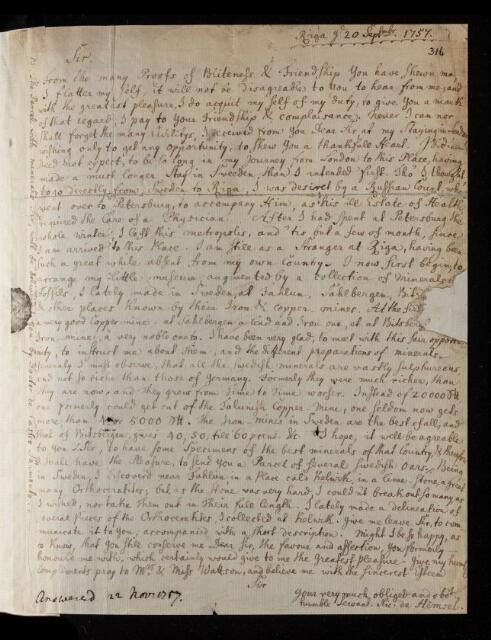 Riga ye 20 Septbr. 1757.
316
Sir
From the many Proofs of Politeness & Friendship You have shewn me
I flatter my self, it will not be disagreable to You to hear from me, and
with the greatest pleasure, I do acquit my self of my duty, to give You a mark
of that regard, I pay to Your Friendship & complaisance. Never I can nor
shall forget the many Civilitys, I received from You Dear Sir at my Staying in London
wishing only to get any Opportunity, to shew You a thankfull Heart. I did
not expect, to be so long in my Journey from London to this Place, having
made a much longer Stay in Sweden, than I intended first. Tho' I thought
to go directly from Sweden to Riga, I was desired by a Russian
went over to Petersburg, to accompany Him, as his ill State of Health
required the Care of a Physician. After I had spent at Petersburg the
whole winter, I left this metropolis, and 'tis but a few of month, since
I am arrived to this Place. I am still as a Stranger at Riga, having been
such a great while absent from my own Country. I now first begin, to
arrange my little museum, augmented by a collection of Minerals
Fossiles, I lately made in Sweden, at Fahlun, Sahlbergen,
& other places known by their Iron & copper mines. At the first
a very good Copper mine, at Sahlbergen a Lead and Iron one, at at Bitsberg
Iron mine, a very noble one. I have been very glad, to meet with this fair opportu
nity, to instruct me about them, and the different preparations of minerals.
Generaly I must observe, that all the Swedish minerals are vastly sulphureous
and not so rich than those of Germany. Formerly they were much richer, than
they are now, and they grow from Time to Time worser. Instead of 20000
one formerly could get out of the Falunish Copper Mine, one seldom now gets
more than 5000 The Iron-mines in Sweden are the best of all, and
that of Bitsbergen, gives 40, 50, till 60 prcnt &c. I hope, it will be agreable
to You Sir, to have some Specimens of the best minerals of that Country, & therefore
I shall have the Pleasure, to send You a Parcel of several Swedish Oars. Being
in Sweden, I discovered near Fahlun in a Place call'd Kelwik, in a lime-Stone, a great
many Orthoceratites, but as the Stone was very hard, I could'nt break out so many as
I wished, nor take them out in their full length. I lately made a delineation of
several Pieces of the Orthoceratites, I collected at Kelwik. Give me leave Sir, to com
municate it to You, accompanied with a short description. Might I be so happy, as
to know, that You still conserve me Dear Sir, the favour and affection, You formerly
honour'd me with, which certainly would give to me the greatest pleasure. Give my humble
Compliments pray to Mrs. & Miss Wattson, and believe me with the sincerest Esteem
Sir
Your very much obliged and obt.
humble Servant. Nic. de Himsel.
Answered 22 Novr 1757.